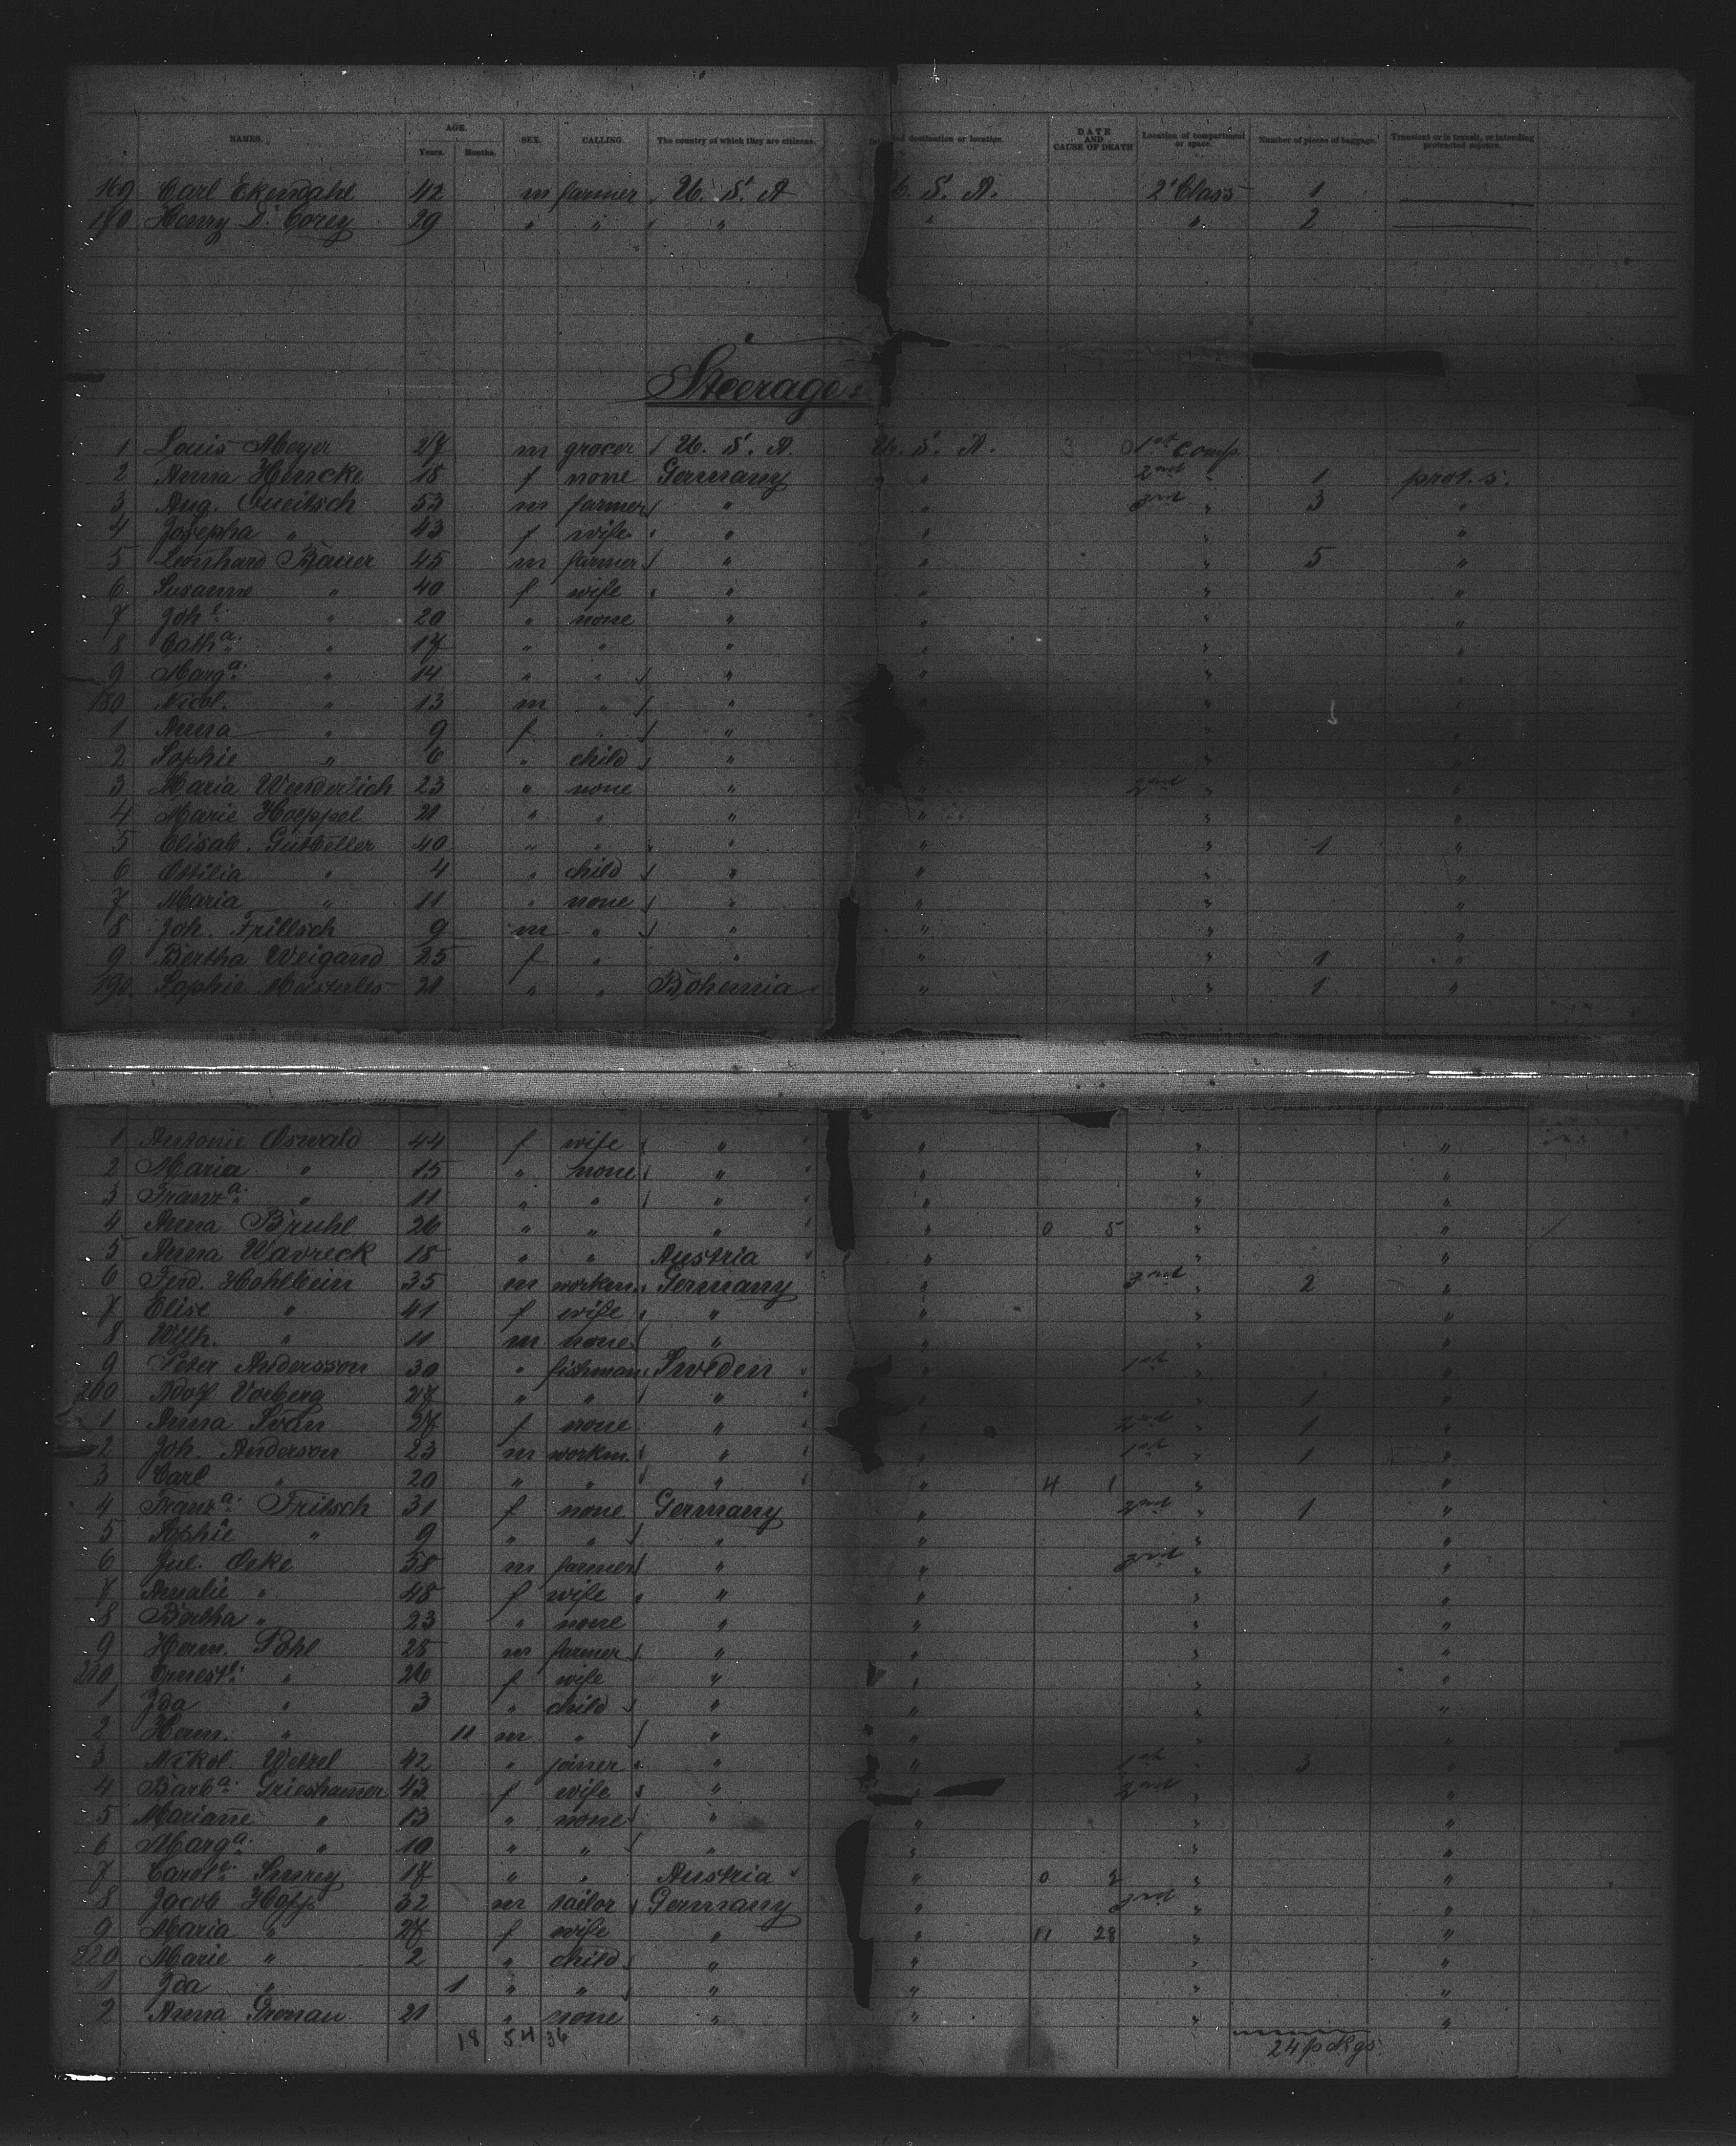 NAMES. AGE. Years. Months. SEX. CALLING. The country of which they are citizens. destination or location. DATE AND CAUSE OF DEATH Location of compartment or space. Number of pieces of baggage. Transient or in transit, or intending protracted sojourn.
169 Carl Ekendahl 42 m farmer U. S. A U. S. A. 2' Class 1
170 Henry D. Corey 29 " " " " " 2
Steerage:
1 Louis Meyer 27 m grocer U. S. A. U. S. A. 3 0 1st Comp.
2 Anna Hencke 18 f none Germany " 2nd " 1 prot. s.
3 Aug. Queitsch 53 m farmer " " 3rd " 3 "
4 Josepha " 43 f wife " " " "
5 Leonhard Bauer 45 m farmer " " " 5 "
6 Susanne " 40 f wife " " " "
7 Johe. " 20 " none " " " "
8 Catha. " 17 " " " " " "
9 Marga. " 14 " " " " " "
180 Nicol. " 13 m " " " " "
1 Anna " 9 f " " " " "
2 Sophie " 6 " child " " " "
3 Maria Wunderlich 23 " none " " 2nd " "
4 Marie Hoeppel 21 " " " " " "
5 Elisab. Gutbeller 40 " " " " " 1 "
6 Ottilia " 4 " child " " " "
7 Maria " 11 " none " " " "
8 Joh. Frillsch 9 m " " " " "
9 Bertha Weigand 25 f " " " " 1 "
190 Sophie 21 " " Bohemia " " 1 "
1 Antonie Oswald 44 f wife " " " "
2 Maria " 15 " none " " " "
3 Franza. " 11 " " " " " "
4 Anna Bruhl 26 " " " " 0 5 " "
5 Anna Wavreck 18 " " Austria " " "
6 Ferd. Hohlbein 35 m workm. Germany " 3rd " 2 "
7 Elise " 41 f wife " " " "
8 Wilh. " 11 m none " " " "
9 Peter Andersson 30 " fishman Sweden " 1st " "
200 Adolf Vorberg 27 " " " " " 1 "
1 Anna Svan 27 f none " " 2nd " 1 "
2 Joh. Anderson 23 m workm. " " 1st " 1 "
3 Carl " 20 " " " " 4 1 " "
4 Franza. Fritsch 31 f none Germany " 2nd " 1 "
5 Sophie " 9 " " " " " "
6 Jul. Oeke 58 m farmer " " 3rd " "
7 Amalie " 48 f wife " " " "
8 Bertha " 23 " none " " " "
9 Herm. Pohl 28 m farmer " " " "
210 Erneste. " 26 f wife " " " "
1 Ida " 3 " child " " " "
2 Herm. " 11 m " " " " "
3 Nikol. Wetzel 42 " joiner " " 1st " 3 "
4 Barba. Grieshamer 43 f wife " " 2nd " "
5 Marianne " 13 " none " " " "
6 Marga. " 10 " " " " " "
7 Carole. 17 " " Austria " 0 2 " "
8 Jacob Hopp 32 m tailor Germany " 3rd " "
9 Maria " 27 f wife " " 11 28 " "
220 Marie " 2 " child " " " "
1 Ida " 1 " " " " " "
2 Anna Gronau 21 " none " " " "
18 54 36 24 pckgs.